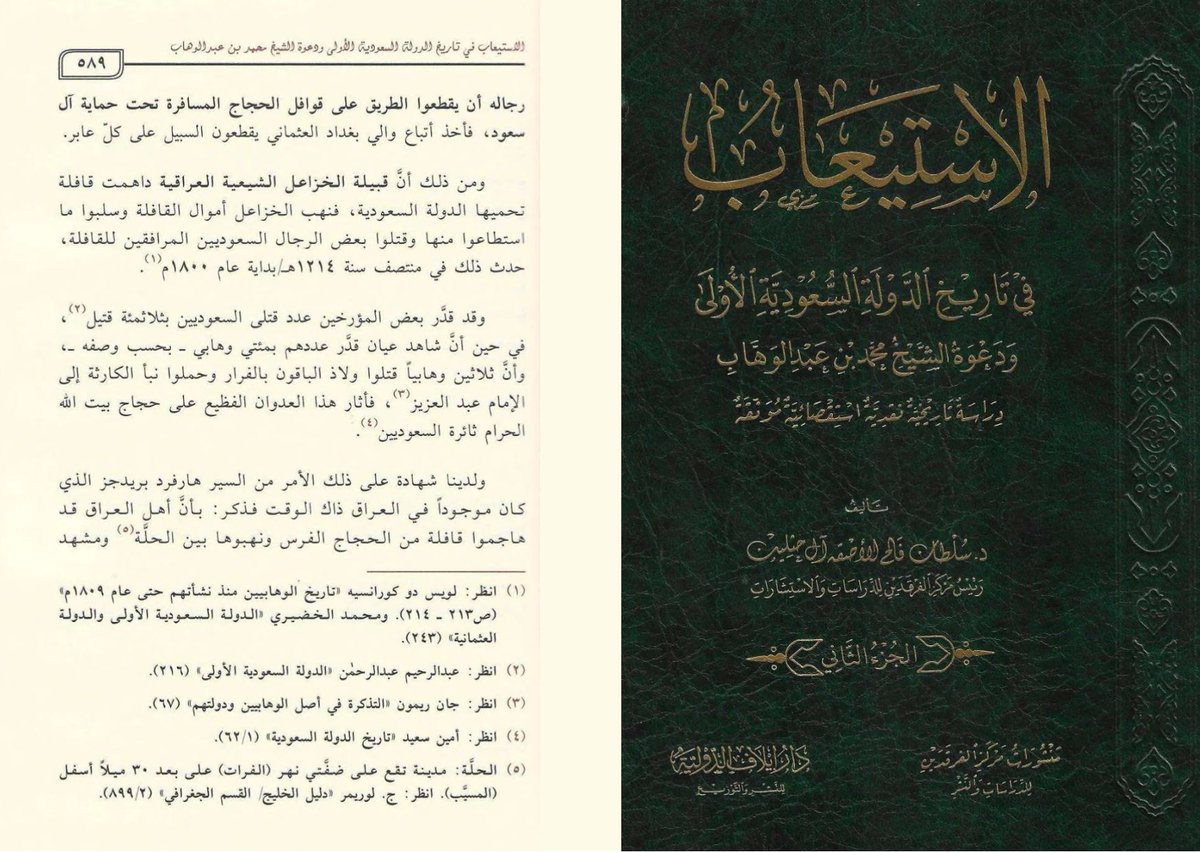 الاستيعاب في تاريخ الدولة السعودية الأولى ودعوة الشيخ محمد بن عبدالوهاب
٥٨٩
رجاله أن يقطعوا الطريق على قوافل الحجاج المسافرة تحت حماية آل
سعود، فأخذ أتباع والي بغداد العثماني يقطعون السبيل على كلّ عابر.
ومن ذلك أنَّ قبيلة الخزاعل الشيعية العراقية داهمت قافلة
تحميها الدولة السعودية، فنهب الخزاعل أموال القافلة وسلبوا ما
استطاعوا منها وقتلوا بعض الرجال السعوديين المرافقين للقافلة،
حدث ذلك في منتصف سنة ١٢١٤هـ/بداية عام ١٨٠٠م(١).
وقد قدَّر بعض المؤرخين عدد قتلى السعوديين بثلاثمئة قتيل(٢)،
في حين أنَّ شاهد عيان قدَّر عددهم بمئتي وهابي ـ بحسب وصفه ـ،
وأنَّ ثلاثين وهابياً قتلوا ولاذ الباقون بالفرار وحملوا نبأ الكارثة إلى
الإمام عبد العزيز(٣)، فأثار هذا العدوان الفظيع على حجاج بيت الله
الحرام ثائرة السعوديين(٤).
ولدينا شهادة على ذلك الأمر من السير هارفرد بريدجز الذي
كان موجوداً في العراق ذاك الوقت فذكر: بأنَّ أهل العراق قد
هاجموا قافلة من الحجاج الفرس ونهبوها بين الحلَّة(٥) ومشهد
(١) انظر: لويس دو كورانسيه «تاريخ الوهابيين منذ نشأتهم حتى عام ١٨٠٩م»
(ص٢١٣ ـ ٢١٤). ومحمد الخضيري «الدولة السعودية الأولى والدولة
العثمانية» (٢٤٣).
(٢) انظر: عبدالرحيم عبدالرحمٰن «الدولة السعودية الأولى» (٢١٦).
(٣) انظر: جان ريمون «التذكرة في أصل الوهابيين ودولتهم» (٦٧).
(٤) انظر: أمين سعيد «تاريخ الدولة السعودية» (٦٢/١).
(٥) الحلَّة: مدينة تقع على ضفَّتي نهر (الفرات) على بعد ٣٠ ميلاً أسفل
(المسيَّب). انظر: ج. لوريمر «دليل الخليج/ القسم الجغرافي» (٨٩٩/٢).
الاستيعاب
في تاريخ الدولة السعودية الأولى
ودعوة الشيخ محمد بن عبد الوهاب
دراسة تاريخية نقدية استقصائية موثقة
تأليف
د. سلطان فالح الأصقه آل حثلين
رئيس مركز الفرقدين للدراسات والاستشارات
الجزء الثاني
منشورات مركز الفرقدين
للدراسات والنشر
دار إيلاف الدولية
للنشر والتوزيع